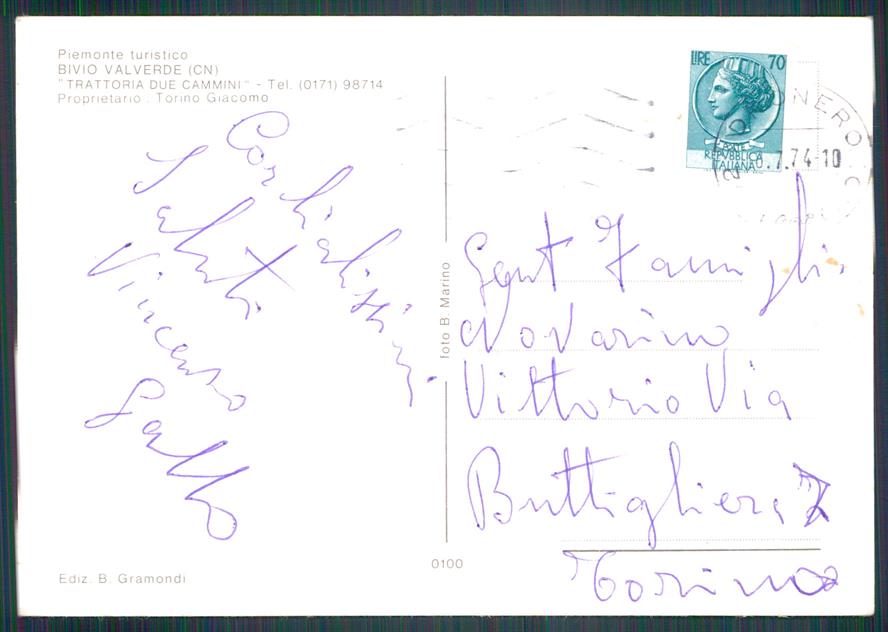 Piemonte turistico
BIVIO VALVERDE (CN)
"TRATTORIA DUE CAMMINI" - Tel. (0171) 98714
Proprietario . Torino Giacomo
LIRE 70
POSTE
REPVBBLICA
ITALIANA
DRONERO
.7.74-10
Cordialissimi
Saluti
Vincenzo
Gallo
foto B. Marino
Gent Famiglia
Novarino
Vittorio Via
Buttigliera 7
Torino
0100
Ediz. B. Gramondi